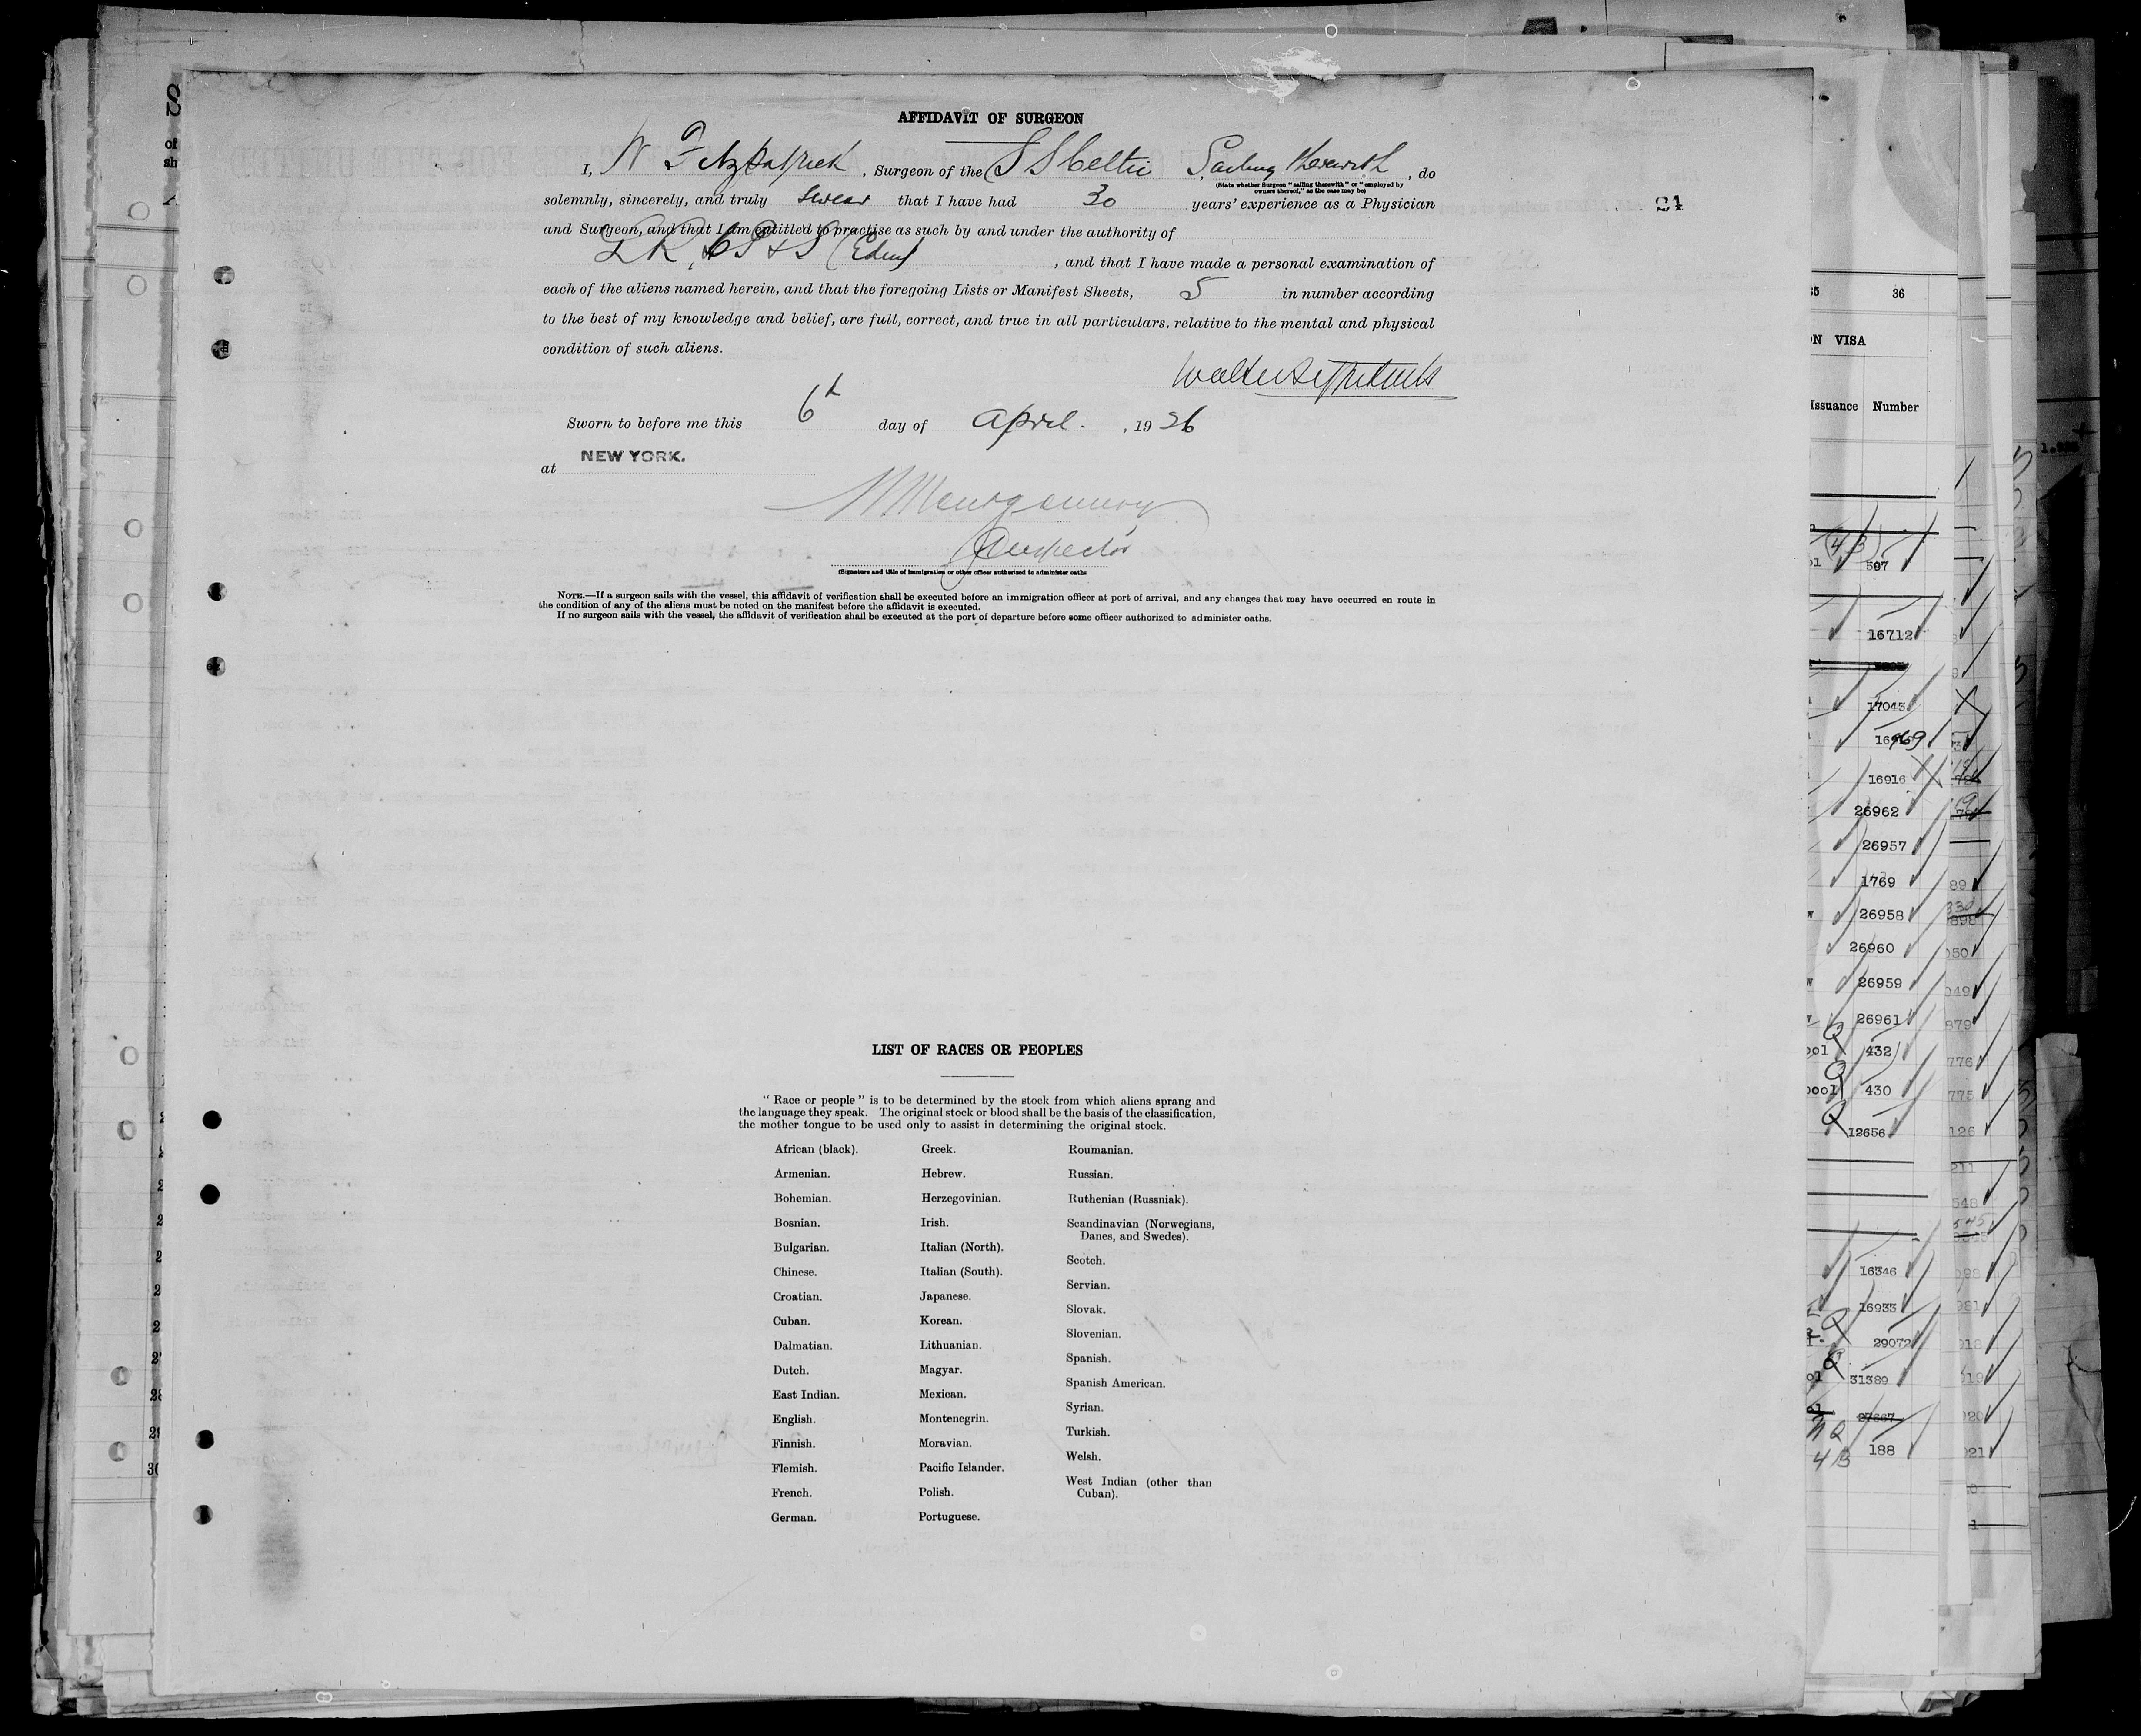 AFFIDAVIT OF SURGEON
I, W Fitzpatrick, Surgeon of the S S Celtic Sailing therewith, do
(State whether Surgeon "sailing therewith" or "employed by
owners thereof," as the case may be)
solemnly, sincerely, and truly swear that I have had 30 years' experience as a Physician
24
and Surgeon, and that I am entitled to practise as such by and under the authority of
L R, C P & S (Edin), and that I have made a personal examination of
each of the aliens named herein, and that the foregoing Lists or Manifest Sheets, 5 in number according
to the best of my knowledge and belief, are full, correct, and true in all particulars, relative to the mental and physical
condition of such aliens.
Walter Fitzpatrick
Sworn to before me this 6th day of April. , 1926
at NEW YORK.
Montgomery
Inspector
(Signature and title of immigration or other officer authorized to administer oaths
NOTE.—If a surgeon sails with the vessel, this affidavit of verification shall be executed before an immigration officer at port of arrival, and any changes that may have occurred en route in
the condition of any of the aliens must be noted on the manifest before the affidavit is executed.
If no surgeon sails with the vessel, the affidavit of verification shall be executed at the port of departure before some officer authorized to administer oaths.
LIST OF RACES OR PEOPLES
"Race or people" is to be determined by the stock from which aliens sprang and
the language they speak. The original stock or blood shall be the basis of the classification,
the mother tongue to be used only to assist in determining the original stock.
African (black).
Armenian.
Bohemian.
Bosnian.
Bulgarian.
Chinese.
Croatian.
Cuban.
Dalmatian.
Dutch.
East Indian.
English.
Finnish.
Flemish.
French.
German.
Greek.
Hebrew.
Herzegovinian.
Irish.
Italian (North).
Italian (South).
Japanese.
Korean.
Lithuanian.
Magyar.
Mexican.
Montenegrin.
Moravian.
Pacific Islander.
Polish.
Portuguese.
Roumanian.
Russian.
Ruthenian (Russniak).
Scandinavian (Norwegians,
Danes, and Swedes).
Scotch.
Servian.
Slovak.
Slovenian.
Spanish.
Spanish American.
Syrian.
Turkish.
Welsh.
West Indian (other than
Cuban).
36
VISA
Issuance Number
597
16712
17043
16916
26962
26957
1769
26958
26960
26959
26961
432
430
12656
16346
16933
29072
31389
27667
188